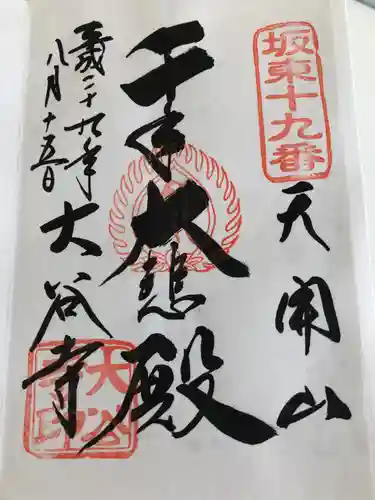 坂東十九番
天開山
千手大悲殿
平成二十九年
八月十五日
大谷寺
大谷寺印